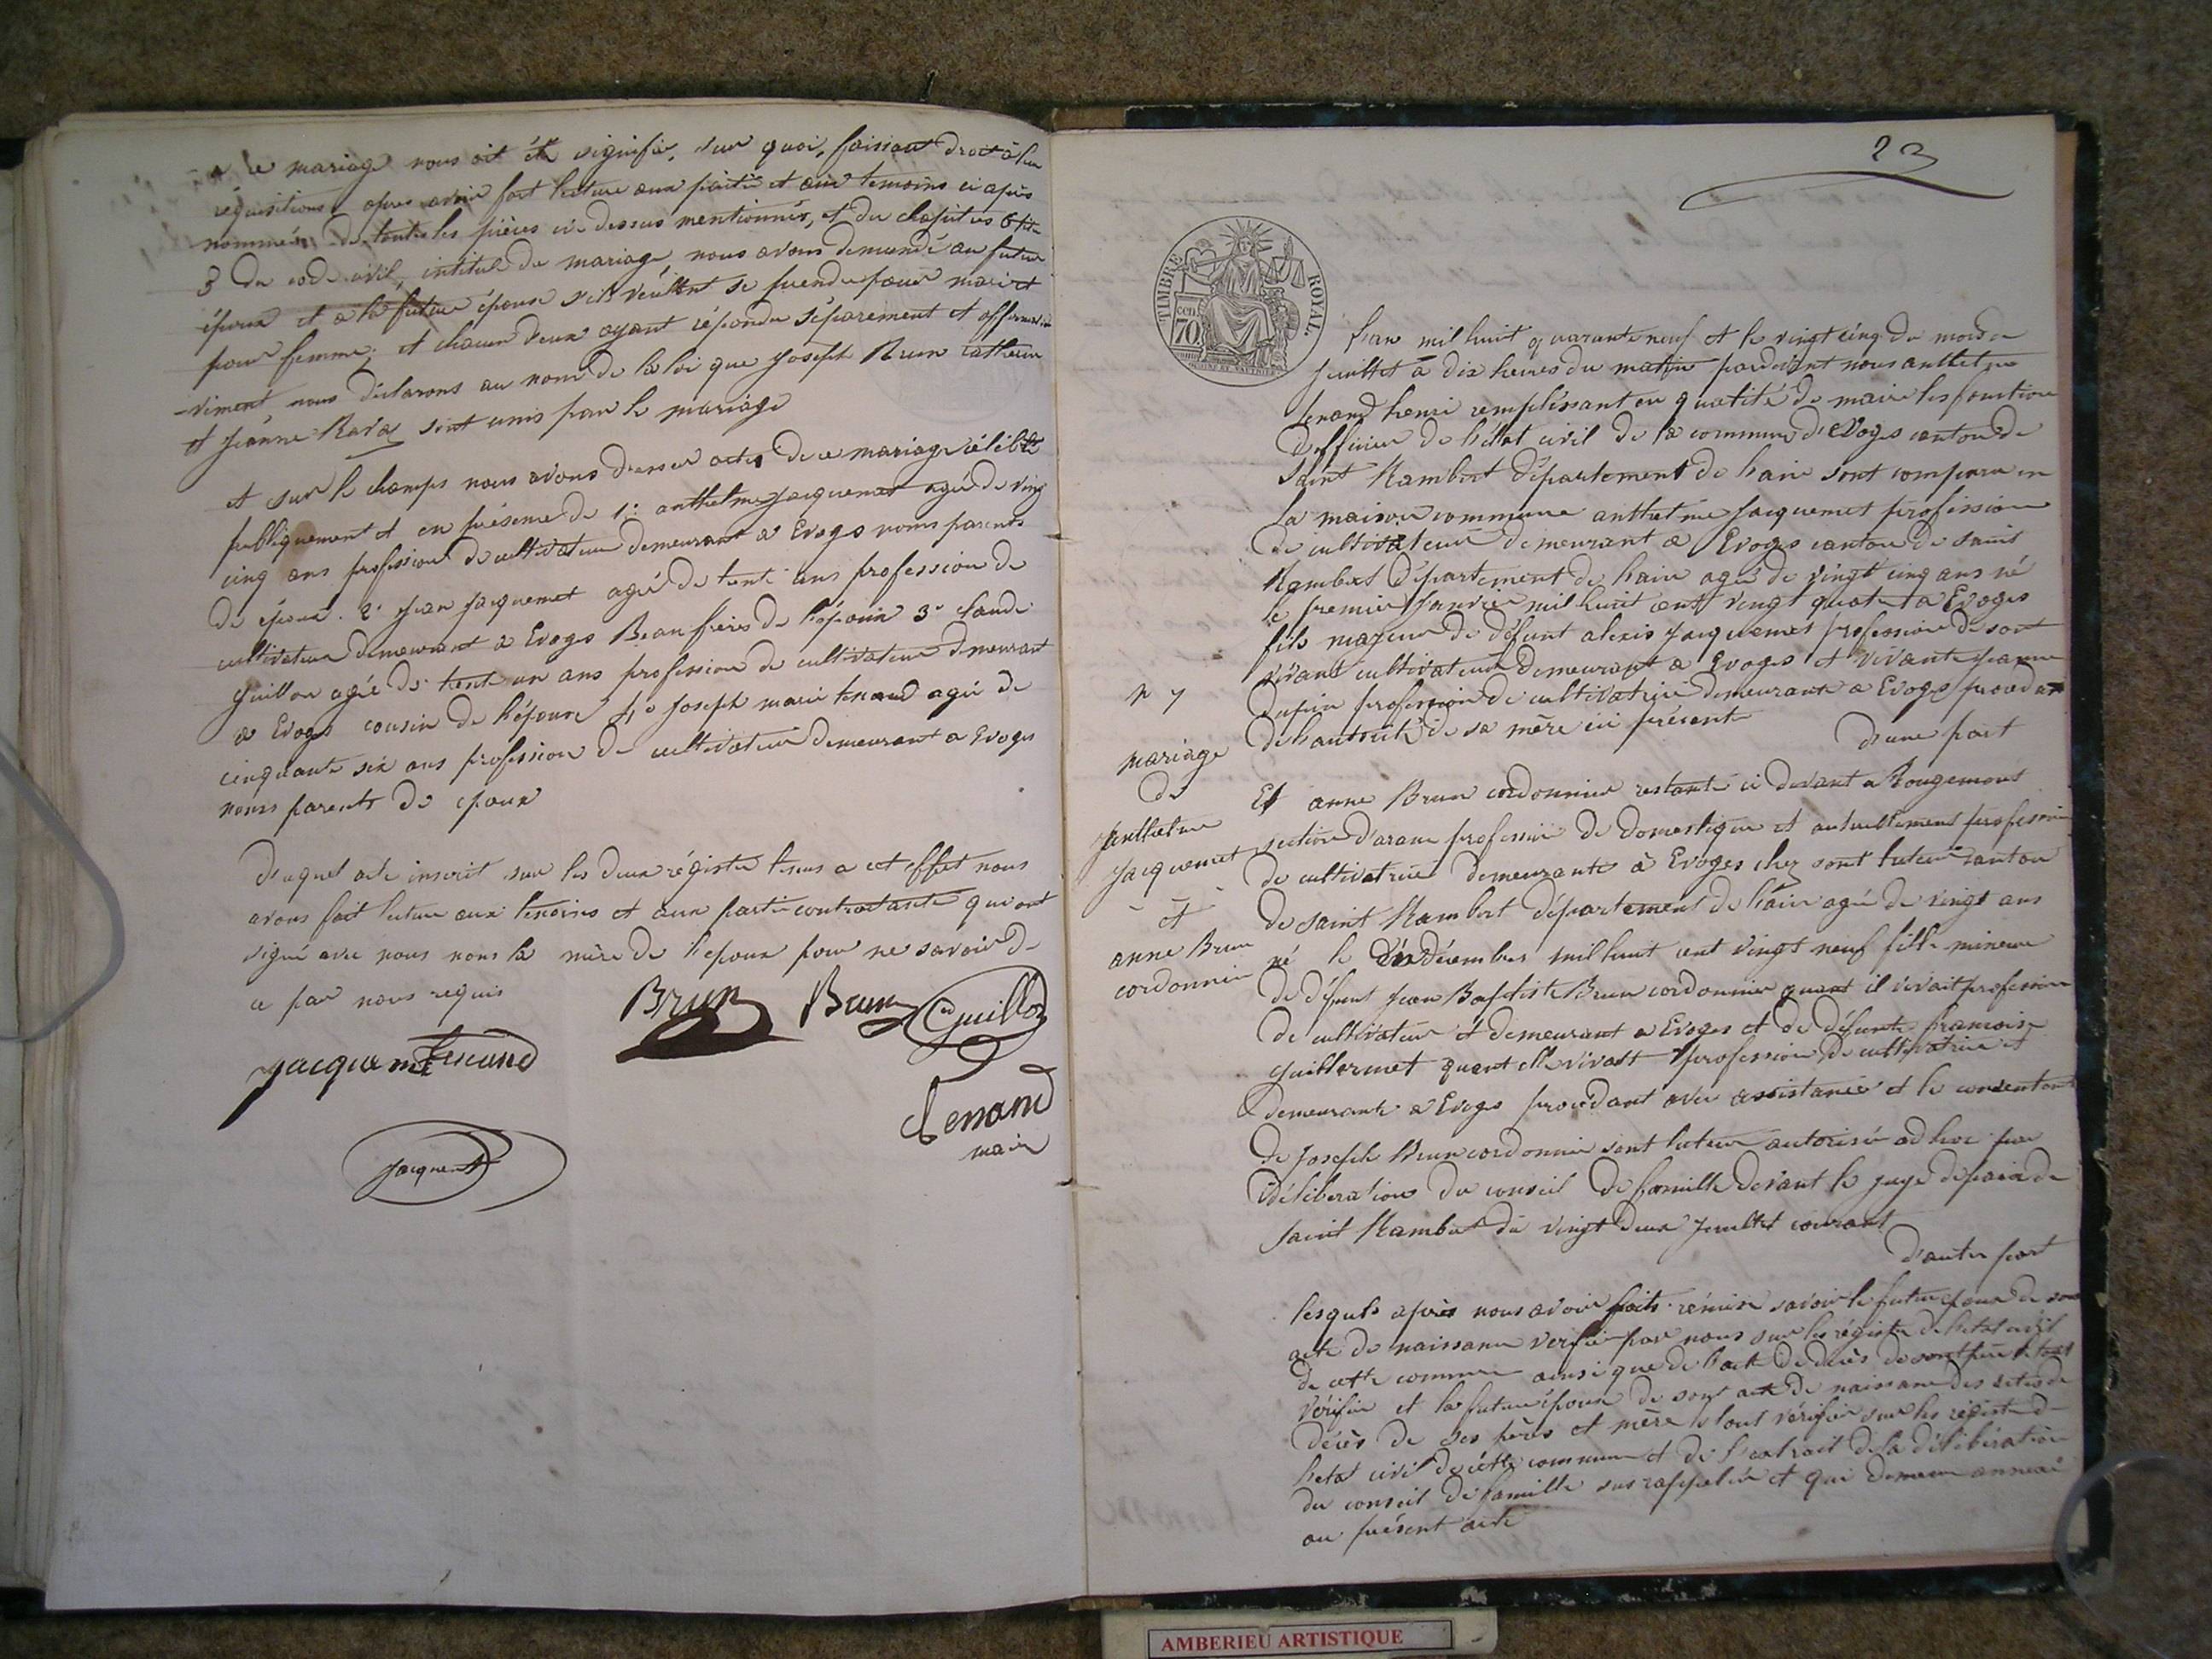 a ce mariage nous ait été signifié, sur quoi, faisant droit à leur
réquisitions apres avoir fait lecture aux partie et aux temoins ci après
nommées de toutes les pièces ci dessus mentionnés, et du chapitres 6 titre
3 du code civil, intitule du mariage nous avons demandé au futur
époux et a la future épouse s'ils veullent se prendre pour mari et
pour femme; et chacun deux ayant répondu séparement et affirmati
-vement nous déclarons au nom de la loi que Joseph Brun
et Jeanne Ravaz sont unis par le mariage
et sur le champs nous avons dresser acte de ce mariage célébré
publiquement et en présence de 1° anthelme Jacquemet agé de ving
cinq ans profession de cultivateur demeurant a Evoges noms parents
de époux. 2° Jean Jacquemet agé de trente ans profession de
cultivateur demeurant a Evoges Beau frères de l'époux 3° Claude
Guillon agée de trente un ans profession de cultivateur demeurant
a Evoges cousin de l'épouse 4° Joseph marie tenand agé de
cinquante six ans profession de cultivateur demeurant a Evoges
noms parents de epoux
Duquel acte inscrit sur les deux régistre tenus a cet effet nous
avons fait lecture aux temoins et aux partie contractante qui ont
signé avec nous nons la mère de l'epoux pour ne savoir de
ce par nous requis
Brun Brun Cd Guillon
Jacquemet tenand
tenand
maire
Jacquemet
23
TIMBRE ROYAL.
70
cen.
l'an mil huit quarante neuf et le vingt cinq du mois de
Juillet à dix heures du matin pardevant nous anthelme
tenand henri remplissant en qualité de maire les fonction
d'officier de l'état civil de la commune d'Evoges canton de
Saint Rambert département de l'ain sont comparu en
la maison commune anthelme Jacquemet profession
de cultivateur demeurant a Evoges canton de saint
Rambert département de l'ain agé de vingt cinq ans né
le premier Janvier mil huit cent vingt quatre a Evoges
fils mageur de défunt alexis Jacquemet profession de sont
vivant cultivateur demeurant a Evoges et vivante Jeanne
Dupin profession de cultivatrice demeurante a Evoges procedant
de l'autorité de sa mère ici présente
d'une part
n 7
mariage
de
anthelme
Jacquemet
et
anne Brun
cordonnier
Et anne Brun cordonnier restante ci devant a Rougemont
section d'aranc profession de domestique et actuellement profession
de cultivatrice demeurante à Evoges chez sont tuteur canton
de saint Rambert département de l'ain agée de vingt ans
né le dix décembre mil huit cent vingt neuf fille mineure
de défunt Jean Baptiste Brun cordonnier quant il vivait profession
de cultivateur et demeurant a Evoges et de défunte francoise
Guillermet quant elle vivait profession de cultivatrice et
demeurante a Evoges procedant avec assistance et le consentant
de Joseph Brun cordonnier sont tuteur autorisée ad hoc par
déliberations du conseil de famille devant le juge de paix de
saint Rambert du vingt deux Juillet courant
d'autre part
lesquels après nous avoir faits remise savoir le futur epoux de son
acte de naissance verfié par nous sur les régistre de l'etat civil
de cette commune ainsi que de l'acte de décès de sont père le tout
vérifié et la future épouse de sont acte de naissance des actes de
décès de ses père et mère le tout vérifié sur les régistre de
l'etat civil de cette commune et de l'extrait de la délibération
du conseil de famille sus rappelée et qui demeure annexé
au présent acte
AMBERIEU ARTISTIQUE